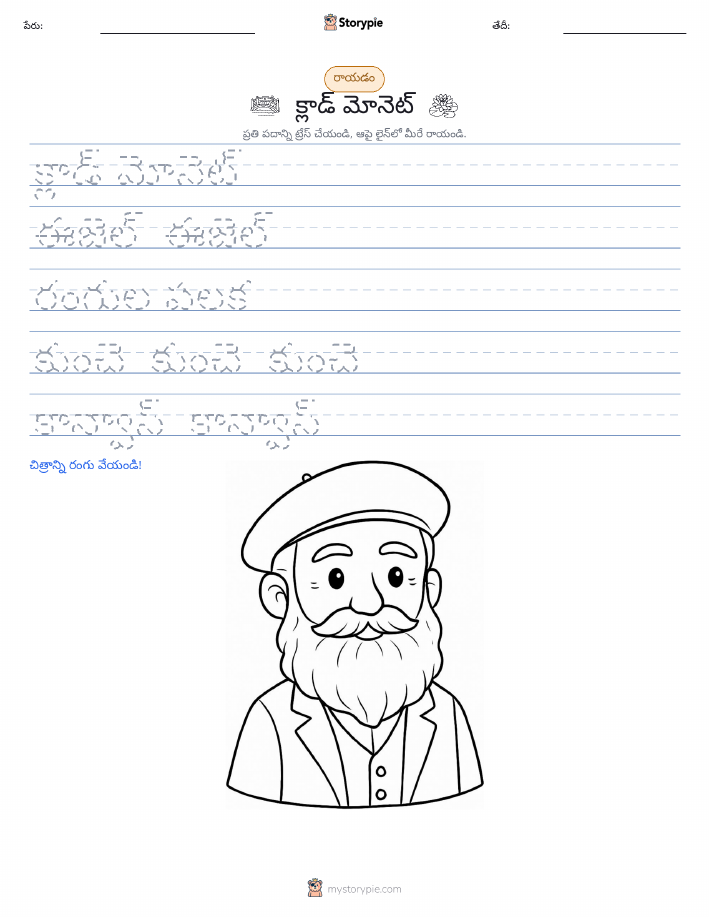 పేరు:
Storypie
తేదీ:
రాయడం
క్లాడ్ మోనెట్
ప్రతి పదాన్ని ట్రేస్ చేయండి, ఆపై లైన్‌లో మీరే రాయండి.
క్లాడ్ మోనెట్
ఈజెల్ ఈజెల్
రంగుల పలక
కుంచె కుంచె కుంచె
కాన్వాస్ కాన్వాస్
చిత్రాన్ని రంగు వేయండి!
mystorypie.com